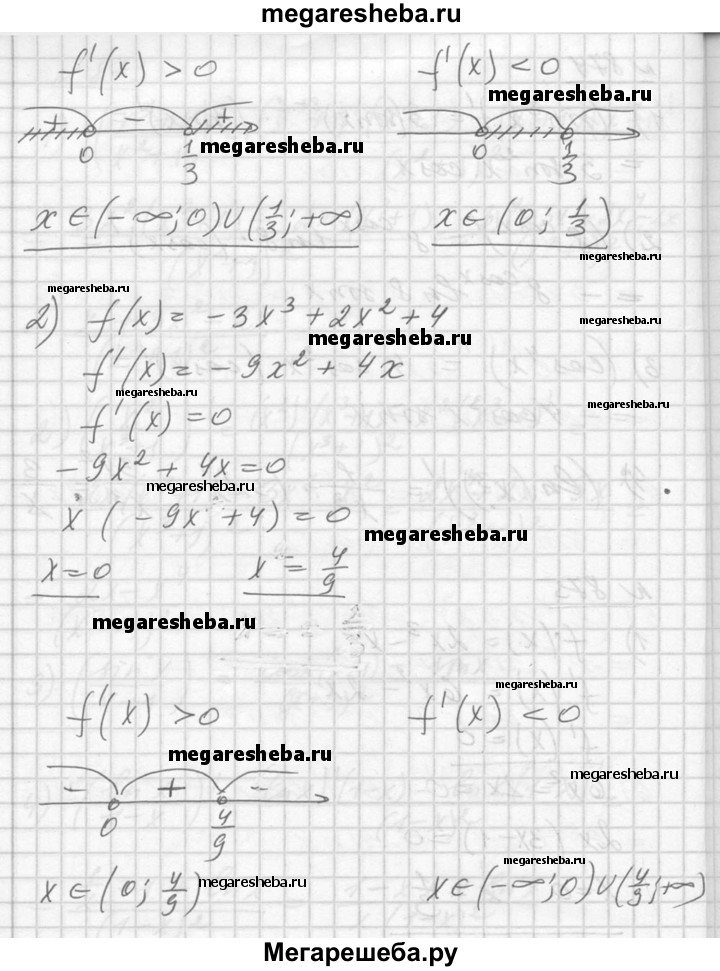 megaresheba.ru
f'(x) > 0 f'(x) < 0
megaresheba.ru
+ - +
0 1/3 0 1/3
megaresheba.ru
x ∈ (-∞; 0) ∪ (1/3; +∞) x ∈ (0; 1/3)
megaresheba.ru megaresheba.ru
2) f(x) = -3x³ + 2x² + 4
megaresheba.ru
f'(x) = -9x² + 4x
megaresheba.ru
f'(x) = 0
megaresheba.ru
-9x² + 4x = 0
megaresheba.ru
x (-9x + 4) = 0
megaresheba.ru
x = 0 x = 4/9
megaresheba.ru
megaresheba.ru
f'(x) > 0 f'(x) < 0
megaresheba.ru
megaresheba.ru
- + -
0 4/9
megaresheba.ru
x ∈ (0; 4/9) x ∈ (-∞; 0) ∪ (4/9; +∞)
megaresheba.ru
Мегарешеба.ру